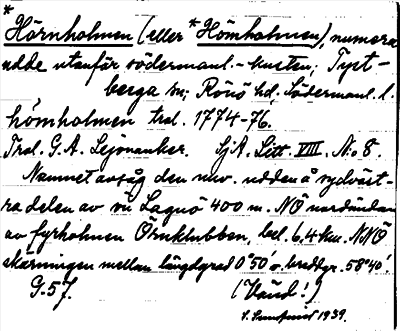 *
Hörnholmen (eller *Hömholmen), numera
udde utanför södermanl.-kusten; Tyst-
berga sn; Rönö hd, Södermanl. l.
hömholmen tral. 1774-76.
Tral. G. A. Lejonanker. SjA. Litt. VIII. No 8.
Namnet avsåg den nuv. udden å sydväst-
ra delen av ön Lagnö 400 m. NÖ
av fyrholmen Örnklubben, bel. 6,4 km. NNÖ
skärningen mellan längdgrad 0°50' o. breddgr. 58°40'.
G. 57. (Vänd!)
1939.